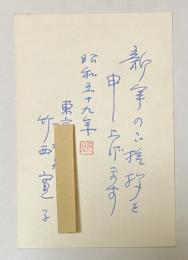 新年のご挨拶を
申し上げます
昭和五十九年
東京
竹西寛子